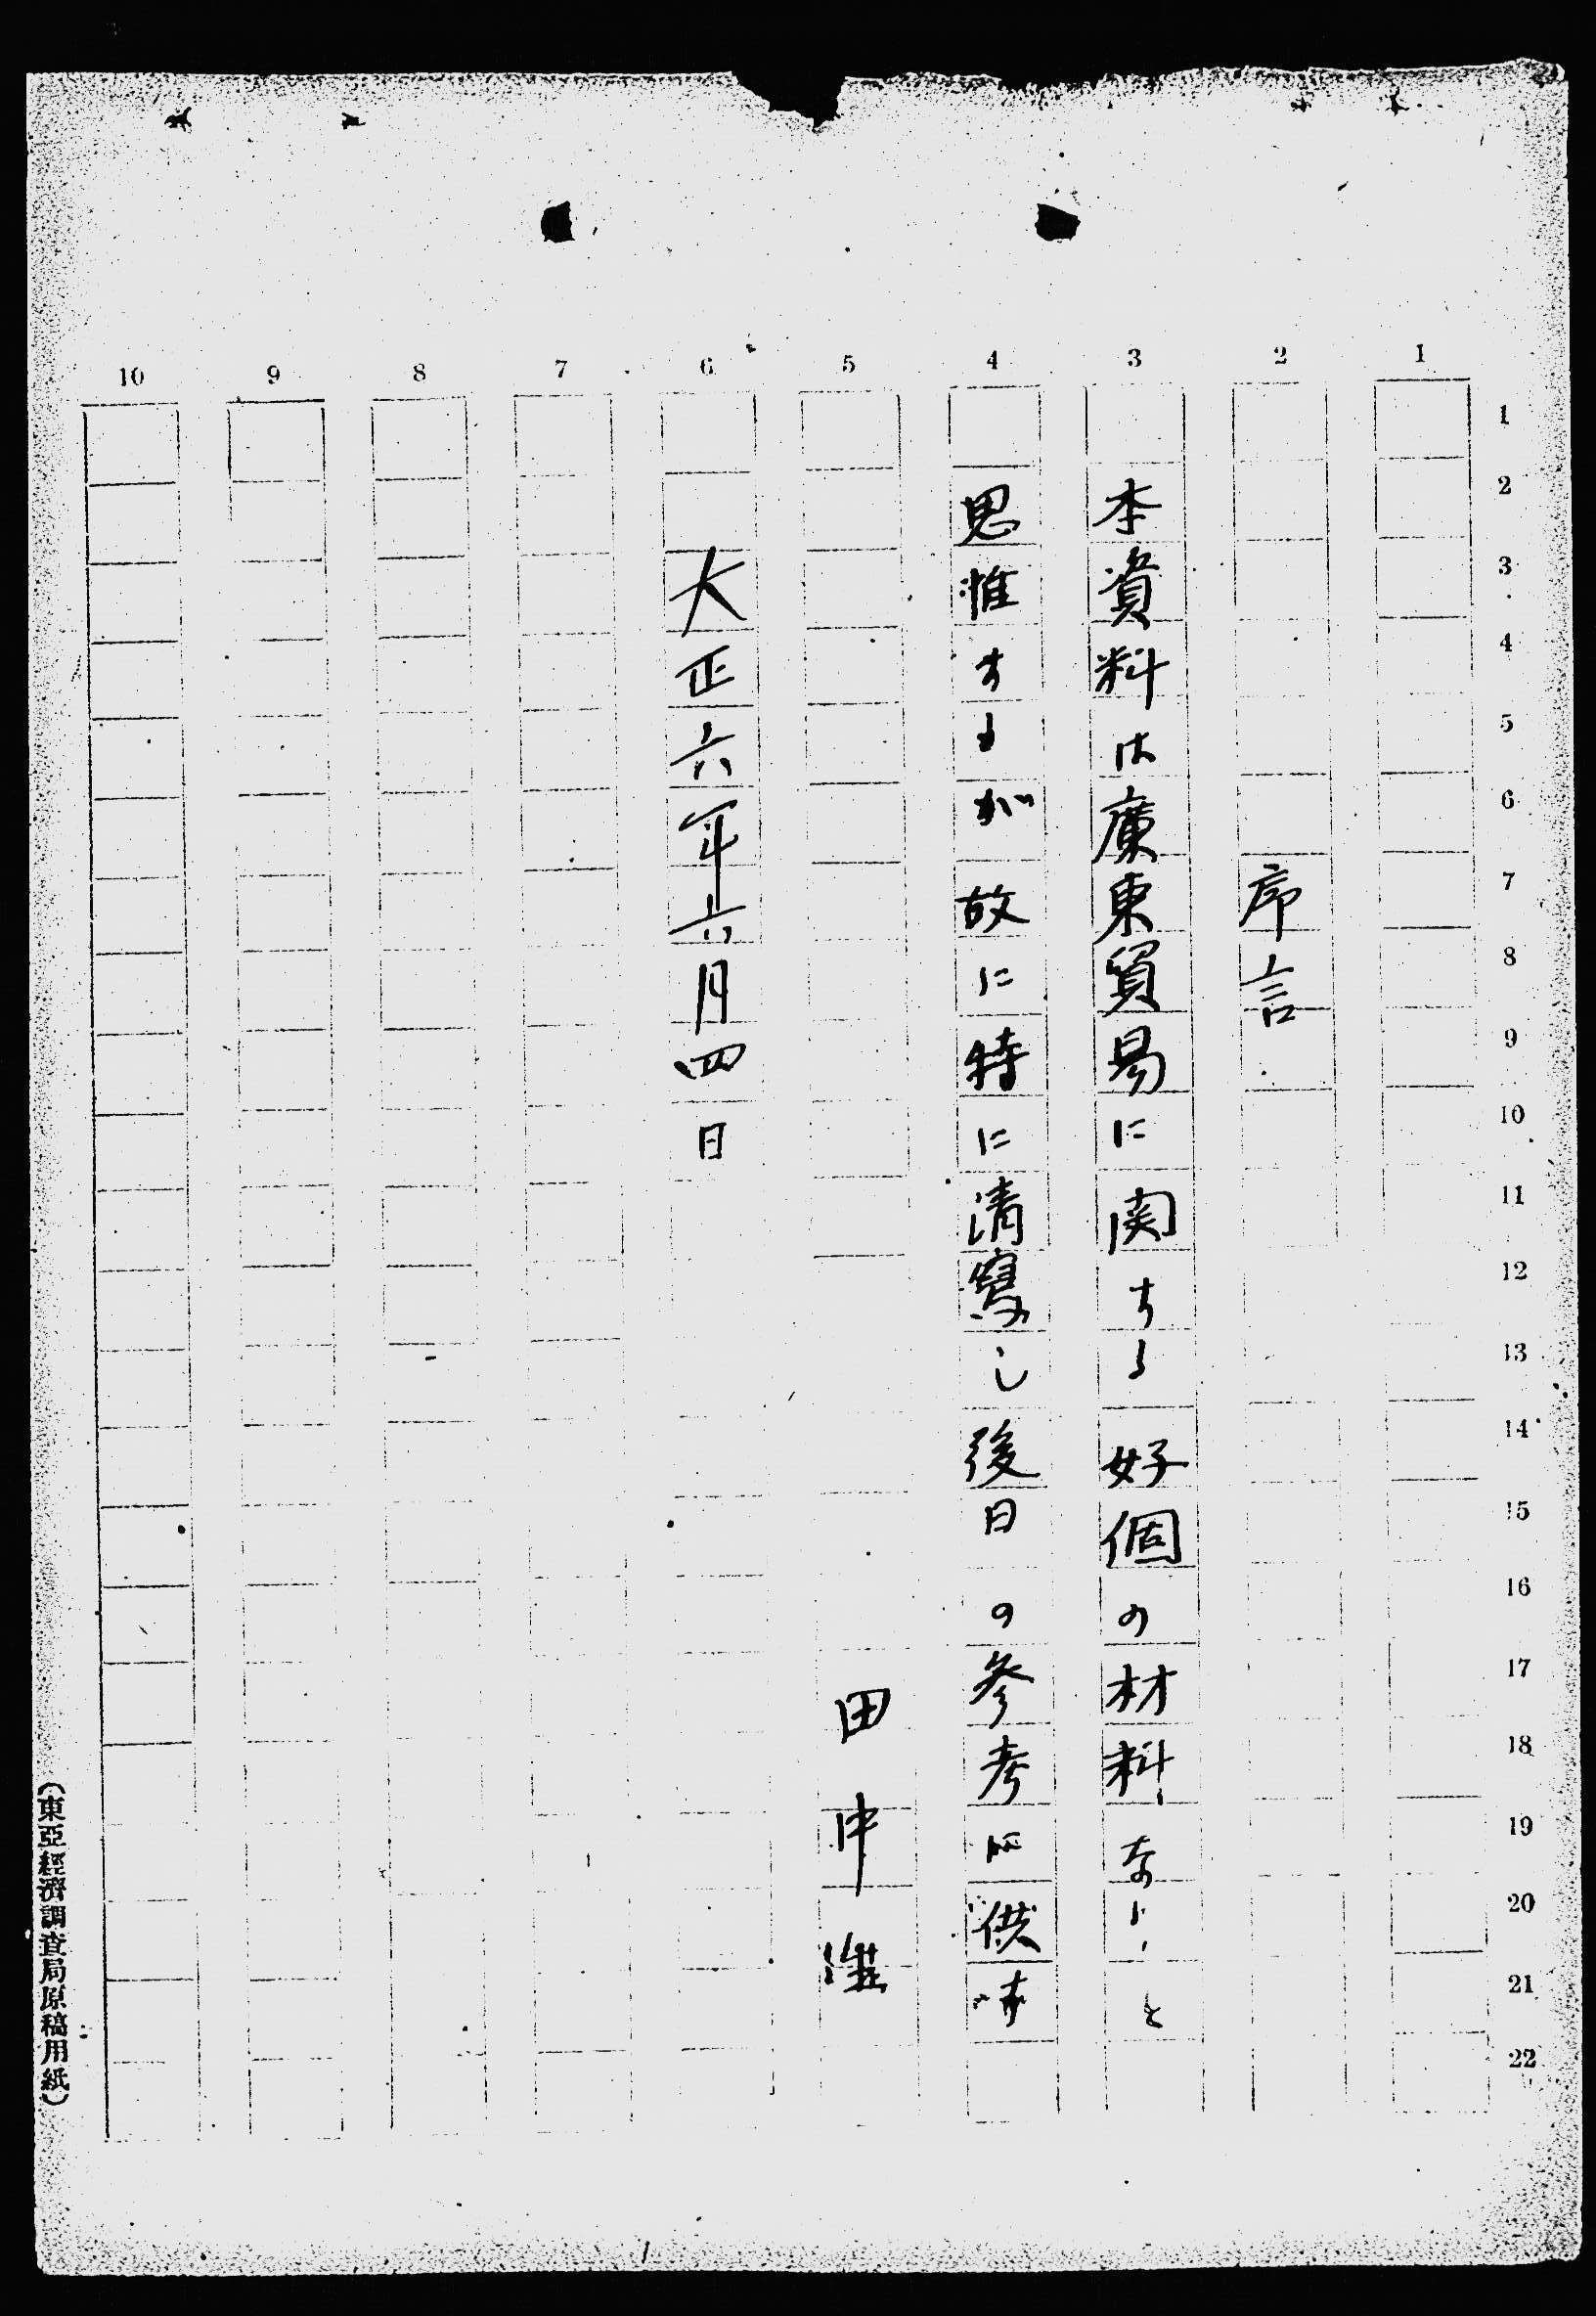 1 2 3 4 5 6 7 8 9 10
1
2
3
4
5
6
7
8
9
10
11
12
13
14
15
16
17
18
19
20
21
22
序言
本資料は廣東貿易に関する好個の材料なりと
思惟するが故に特に清寫し後日の参考に供す
田中
大正六年六月四日
(東亞經濟調査局原稿用紙)